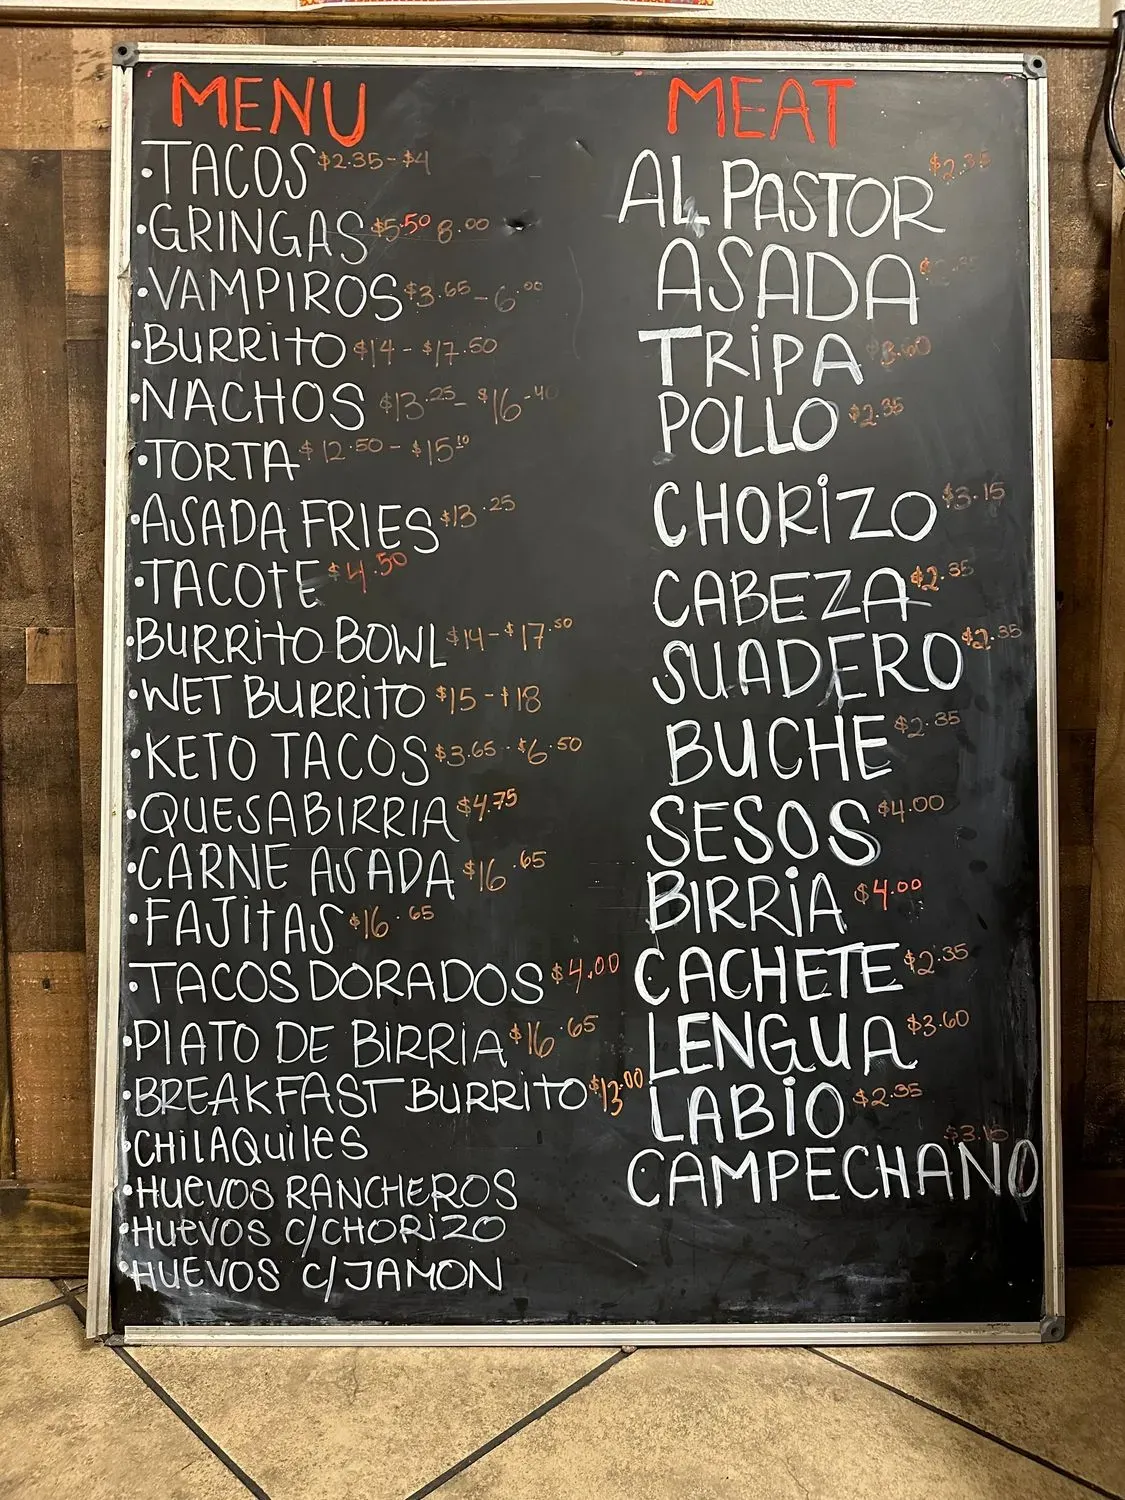 MENU
•TACOS $2.35-$4
•GRINGAS $5.50 8.00
•VAMPIROS $3.65-6.00
•BURRITO $14-$17.50
•NACHOS $13.25-$16.40
•TORTA $12.50-$15.10
•ASADA FRIES $13.25
•TACOTE $4.50
•BURRITO BOWL $14-$17.50
•WET BURRITO $15-$18
•KETO TACOS $3.65-$6.50
•QUESABIRRIA $4.75
•CARNE ASADA $16.65
•FAJITAS $16.65
•TACOS DORADOS $4.00
•PLATO DE BIRRIA $16.65
•BREAKFAST BURRITO $13.00
•CHILAQUILES
•HUEVOS RANCHEROS
•HUEVOS C/CHORIZO
•HUEVOS C/JAMON
MEAT
AL PASTOR $2.35
ASADA
TRIPA
POLLO $2.35
CHORIZO $3.15
CABEZA $2.35
SUADERO $2.35
BUCHE $2.35
SESOS $4.00
BIRRIA $4.00
CACHETE $2.35
LENGUA $3.60
LABIO $2.35
CAMPECHANO $3.15